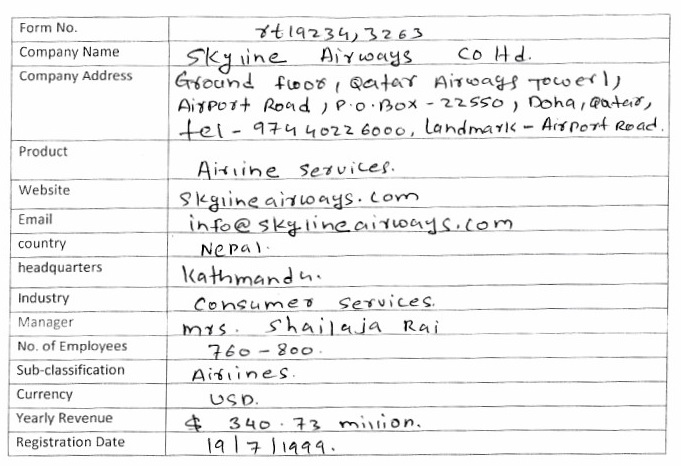 Form No. rt19234,3263
Company Name Skyline Airways Co ltd.
Company Address Ground floor, Qatar Airways Tower 1,
Airport Road, P.O.Box - 22550, Doha, Qatar,
tel - 974 4022 6000, Landmark - Airport Road.
Product Airline services.
Website skylineairways.com
Email info@skylineairways.com
country Nepal.
headquarters Kathmandu.
Industry Consumer services.
Manager mrs. Shailaja Rai
No. of Employees 760 - 800.
Sub-classification Airlines.
Currency USD.
Yearly Revenue $ 340.73 million.
Registration Date 19/7/1999.